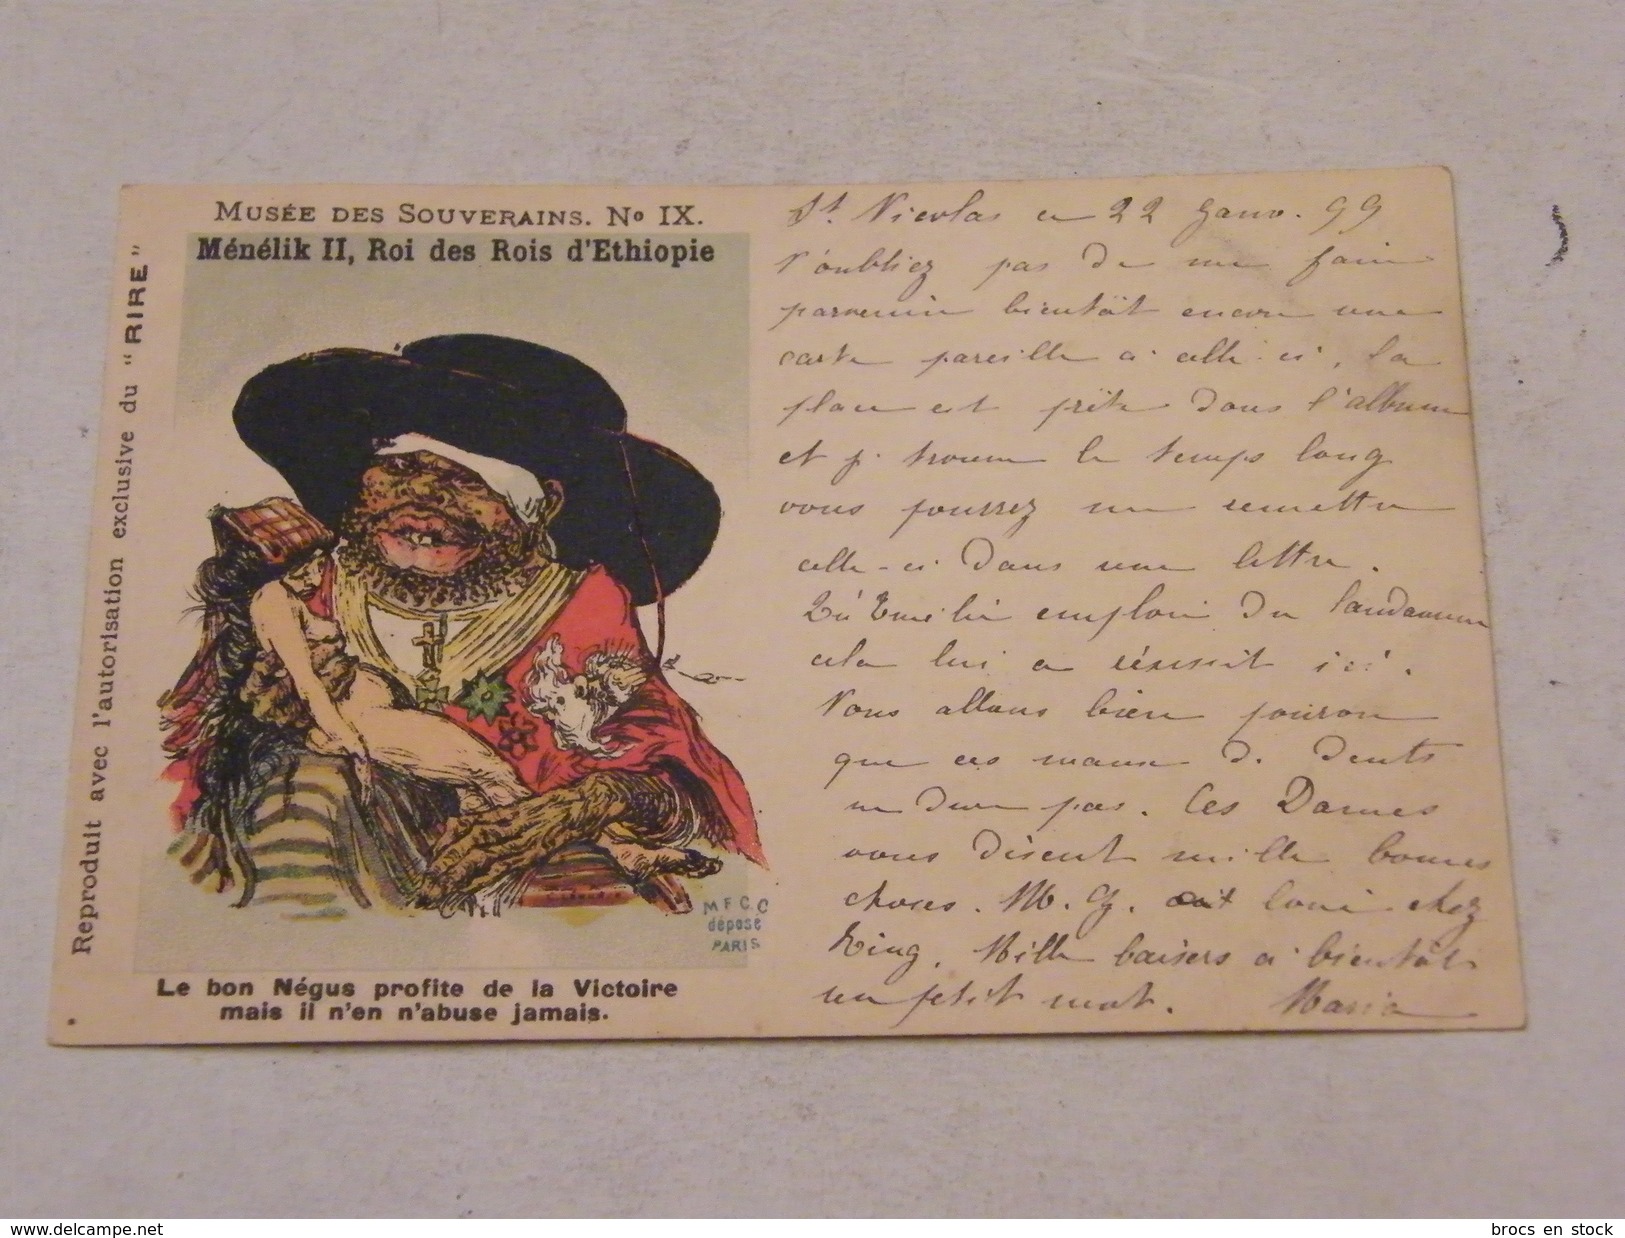 MUSÉE DES SOUVERAINS. No IX.
Ménélik II, Roi des Rois d'Ethiopie
Reproduit avec l'autorisation exclusive du "RIRE"
M F C C
déposé
PARIS
Le bon Négus profite de la Victoire
mais il n'en n'abuse jamais.
St. Nicolas ce 22 Janv. 99
N'oubliez pas de me faire
parvenir bientôt encore une
carte pareille à celle-ci, la
place est prête dans l'album
et j. trouve le temps long
vous pourrez me remettre
celle-ci dans une lettre.
Emélie emploie du
cela lui a réussit ici.
Nous allons bien pourvu
que ces maux d. dents
ne dure pas. Ces Dames
vous disent mille bonnes
choses. M. G. loué chez
King. Mille baisers à bientôt
un petit mot. Maria
www.delcampe.net
brocs en stock